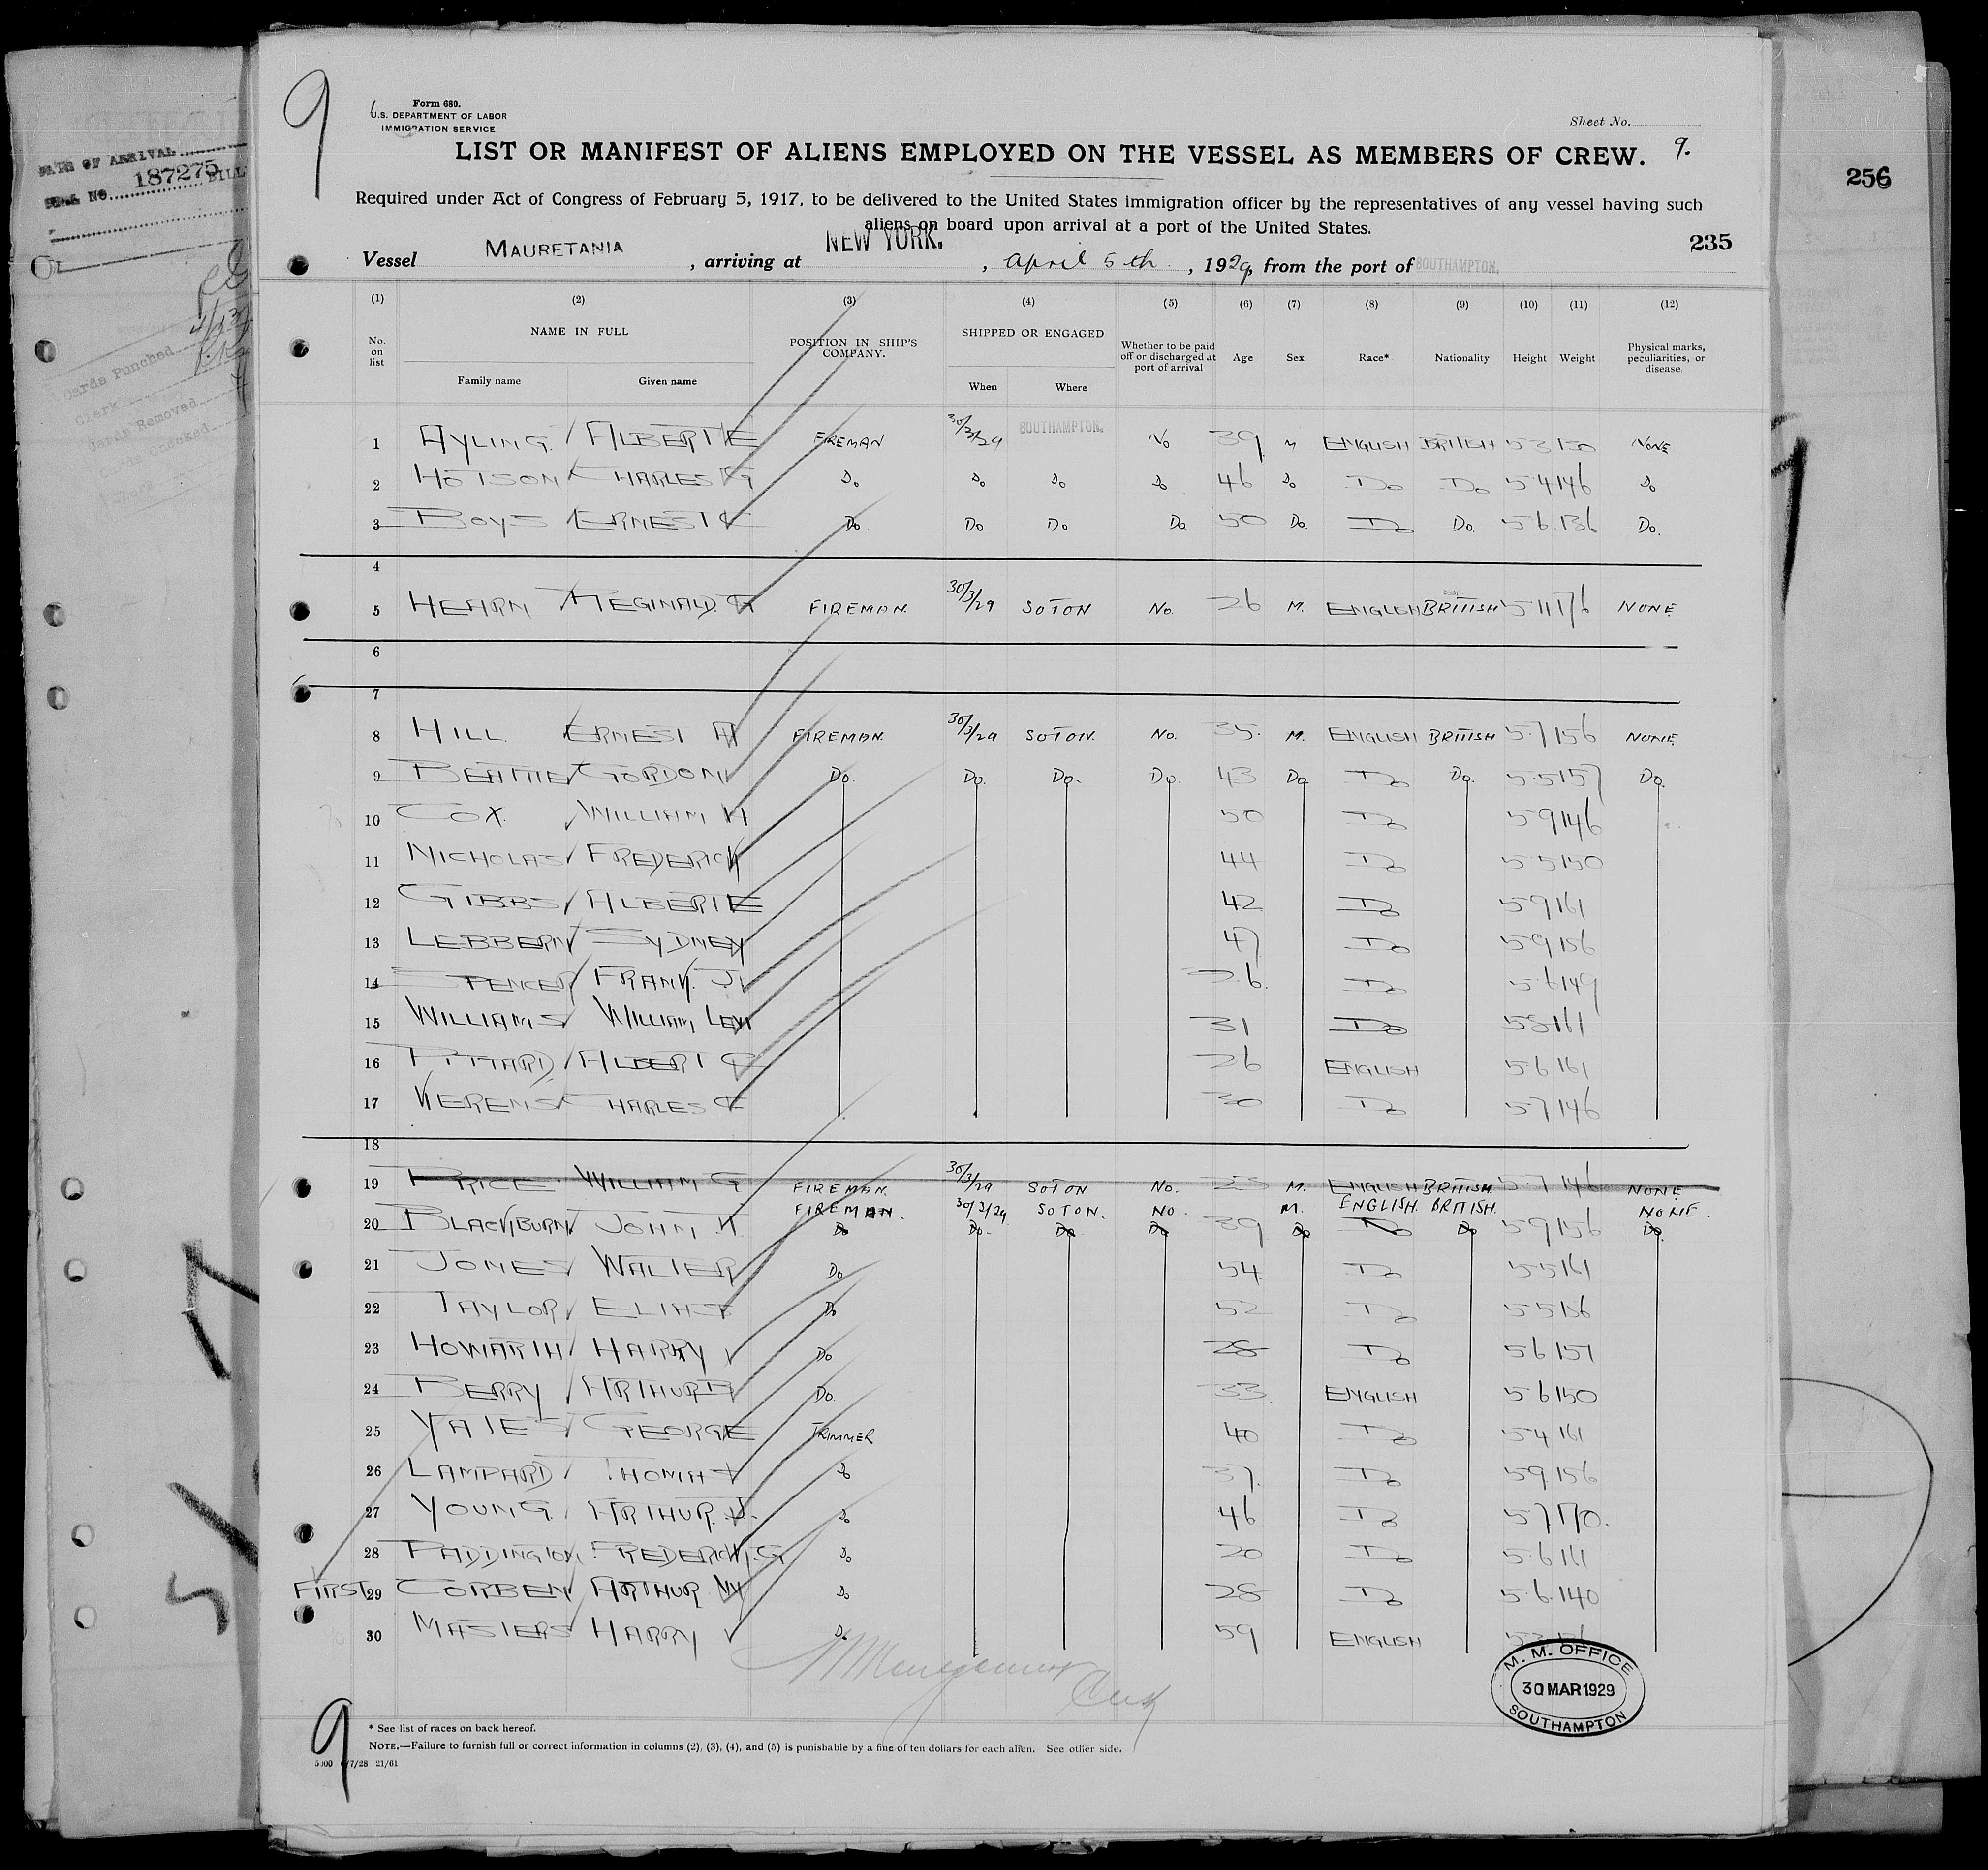 9
Form 680.
U.S. DEPARTMENT OF LABOR
IMMIGRATION SERVICE
Sheet No.
LIST OR MANIFEST OF ALIENS EMPLOYED ON THE VESSEL AS MEMBERS OF CREW. 9.
Required under Act of Congress of February 5, 1917, to be delivered to the United States immigration officer by the representatives of any vessel having such
aliens on board upon arrival at a port of the United States.
DATE OF ARRIVAL
187275
256
235
Vessel MAURETANIA, arriving at NEW YORK., April 5th, 1929, from the port of SOUTHAMPTON.
(1) (2) (3) (4) (5) (6) (7) (8) (9) (10) (11) (12)
No. on list NAME IN FULL Family name Given name POSITION IN SHIP'S COMPANY. SHIPPED OR ENGAGED When Where Whether to be paid off or discharged at port of arrival Age Sex Race* Nationality Height Weight Physical marks, peculiarities, or disease.
Cards Punched
Clerk
Cards Removed
Cards Checked
1 AYLING ALBERT E FIREMAN 30/3/29 SOUTHAMPTON. No 39 M ENGLISH BRITISH 5-3 150 NONE
2 HOTSON CHARLES G Do Do Do Do 46 Do Do Do 5-4 146 Do
3 BOYS ERNEST C Do. Do Do Do 50 Do. Do Do. 5-6 136 Do.
4
5 HEARN REGINALD. G FIREMAN. 30/3/29 SOTON No. 26 M. ENGLISH BRITISH 5-11 176 NONE
6
7
8 HILL ERNEST A FIREMAN. 30/3/29 SOTON. No. 35. M. ENGLISH BRITISH 5-7 156 NONE.
9 BEATTIE GORDON Do. Do. Do. Do. 43 Do Do Do. 5-5 157 Do.
10 COX. WILLIAM H 50 Do 5-9 146
11 NICHOLAS FREDERICK 44 Do 5-5 150
12 GIBBS ALBERT E 42 Do 5-9 161
13 LEBBERN SYDNEY 47 Do 5-9 156
14 SPENCER FRANK. J 26. Do 5-6 149
15 WILLIAMS WILLIAM LEVI 31 Do 5-8 161
16 PITTARD ALBERT C 26 ENGLISH 5-6 161
17 KERENS CHARLES C 30 Do 5-7 146
18
19 PRICE WILLIAM G FIREMAN. 30/3/29 SOTON No. M. ENGLISH BRITISH. 5-7 146 NONE
FIREMAN. 30/3/29 SOTON. NO. M. ENGLISH. BRITISH. NONE.
20 BLACKBURN JOHN. H. Do Do. Do Do 39 Do Do Do 5-9 156 Do.
21 JONES WALTER Do 54. Do 5-5 161
22 TAYLOR ELIAS Do 52 Do 5-5
23 HOWARTH HARRY Do 28 Do 5-6 157
24 BERRY ARTHUR A Do. 33. ENGLISH 5-6 150
25 YATES GEORGE TRIMMER 40 Do 5-4 161
26 LAMPARD THOMAS Do 37. Do 5-9 156
27 YOUNG. ARTHUR. J. Do 46 Do 5-7 170.
28 PADDINGTON FREDERICK. G Do 20 Do 5-6 161
FIRST 29 CORBEN ARTHUR W Do 28 Do 5-6. 140
30 MASTERS HARRY Do 59 ENGLISH
M. M. OFFICE
30 MAR 1929
SOUTHAMPTON
9
* See list of races on back hereof.
NOTE.—Failure to furnish full or correct information in columns (2), (3), (4), and (5) is punishable by a fine of ten dollars for each alien. See other side.
7/28 21/61